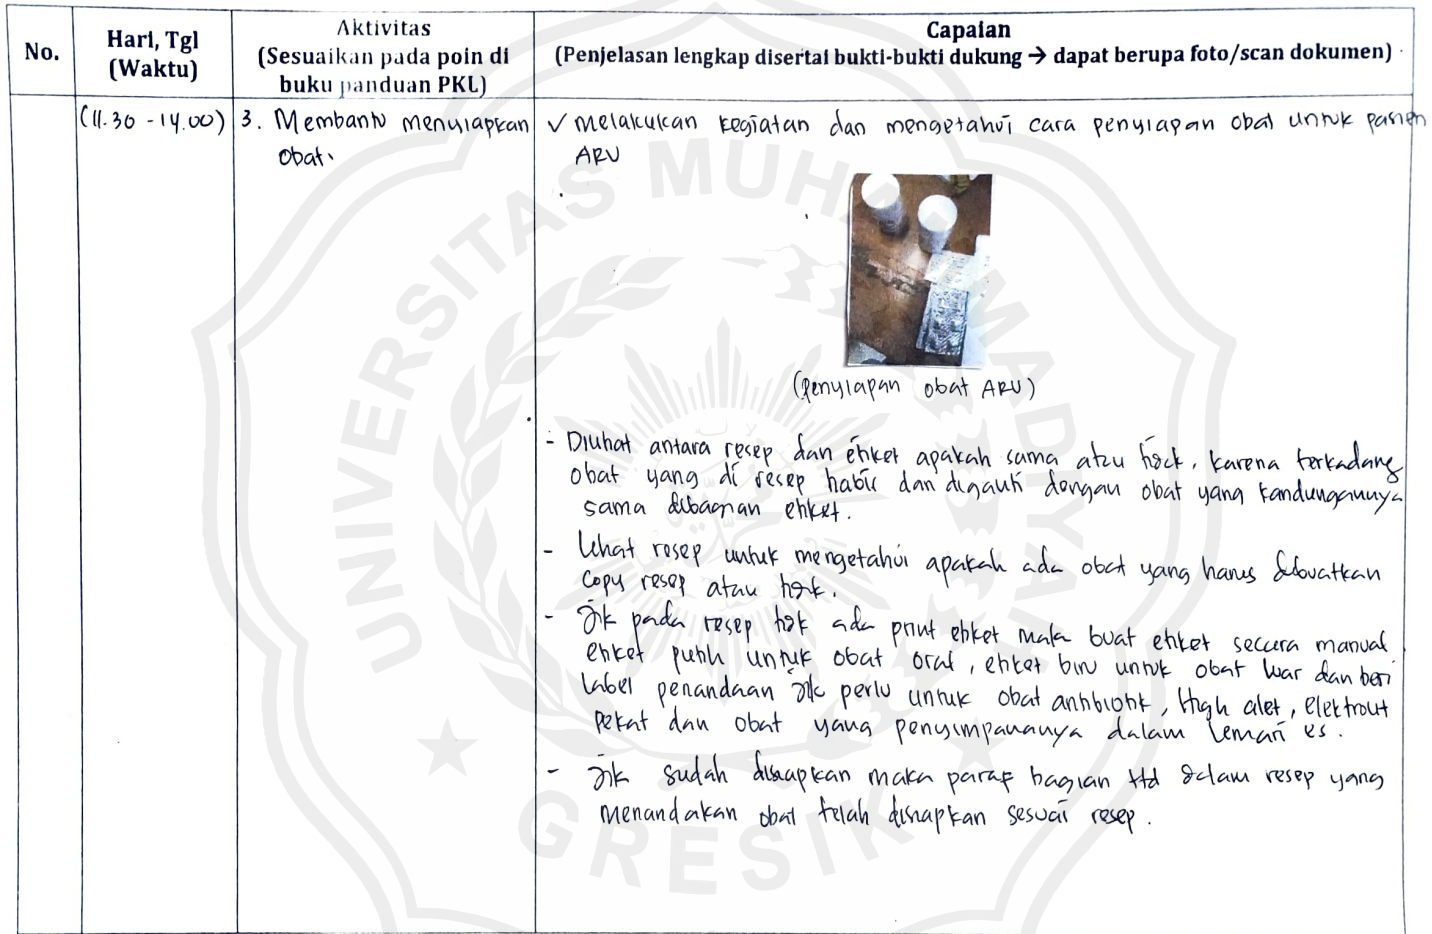 No.
Hari, Tgl
(Waktu)
Aktivitas
(Sesuaikan pada poin di
buku panduan PKL)
Capaian
(Penjelasan lengkap disertai bukti-bukti dukung → dapat berupa foto/scan dokumen)
(11.30 - 14.00)
3. Membantu menyiapkan
obat.
✓ Melakukan kegiatan dan mengetahui cara penyiapan obat untuk pasien
ARV
(Penyiapan obat ARV)
- Dilihat antara resep dan etiket apakah sama atau tidak, karena terkadang
obat yang di resep habis dan diganti dengan obat yang kandungannya
sama dibagian etiket.
- Lihat resep untuk mengetahui apakah ada obat yang harus dibuatkan
copy resep atau tidak.
- Jika pada resep tidak ada print etiket maka buat etiket secara manual
etiket putih untuk obat oral, etiket biru untuk obat luar dan beri
label penandaan jika perlu untuk obat antibiotik, High alert, elektrolit
pekat dan obat yang penyimpanannya dalam lemari es.
- Jika sudah disiapkan maka paraf bagian ttd dalam resep yang
menandakan obat telah disiapkan sesuai resep.
UNIVERSITAS MUHAMMADIYAH
GRESIK